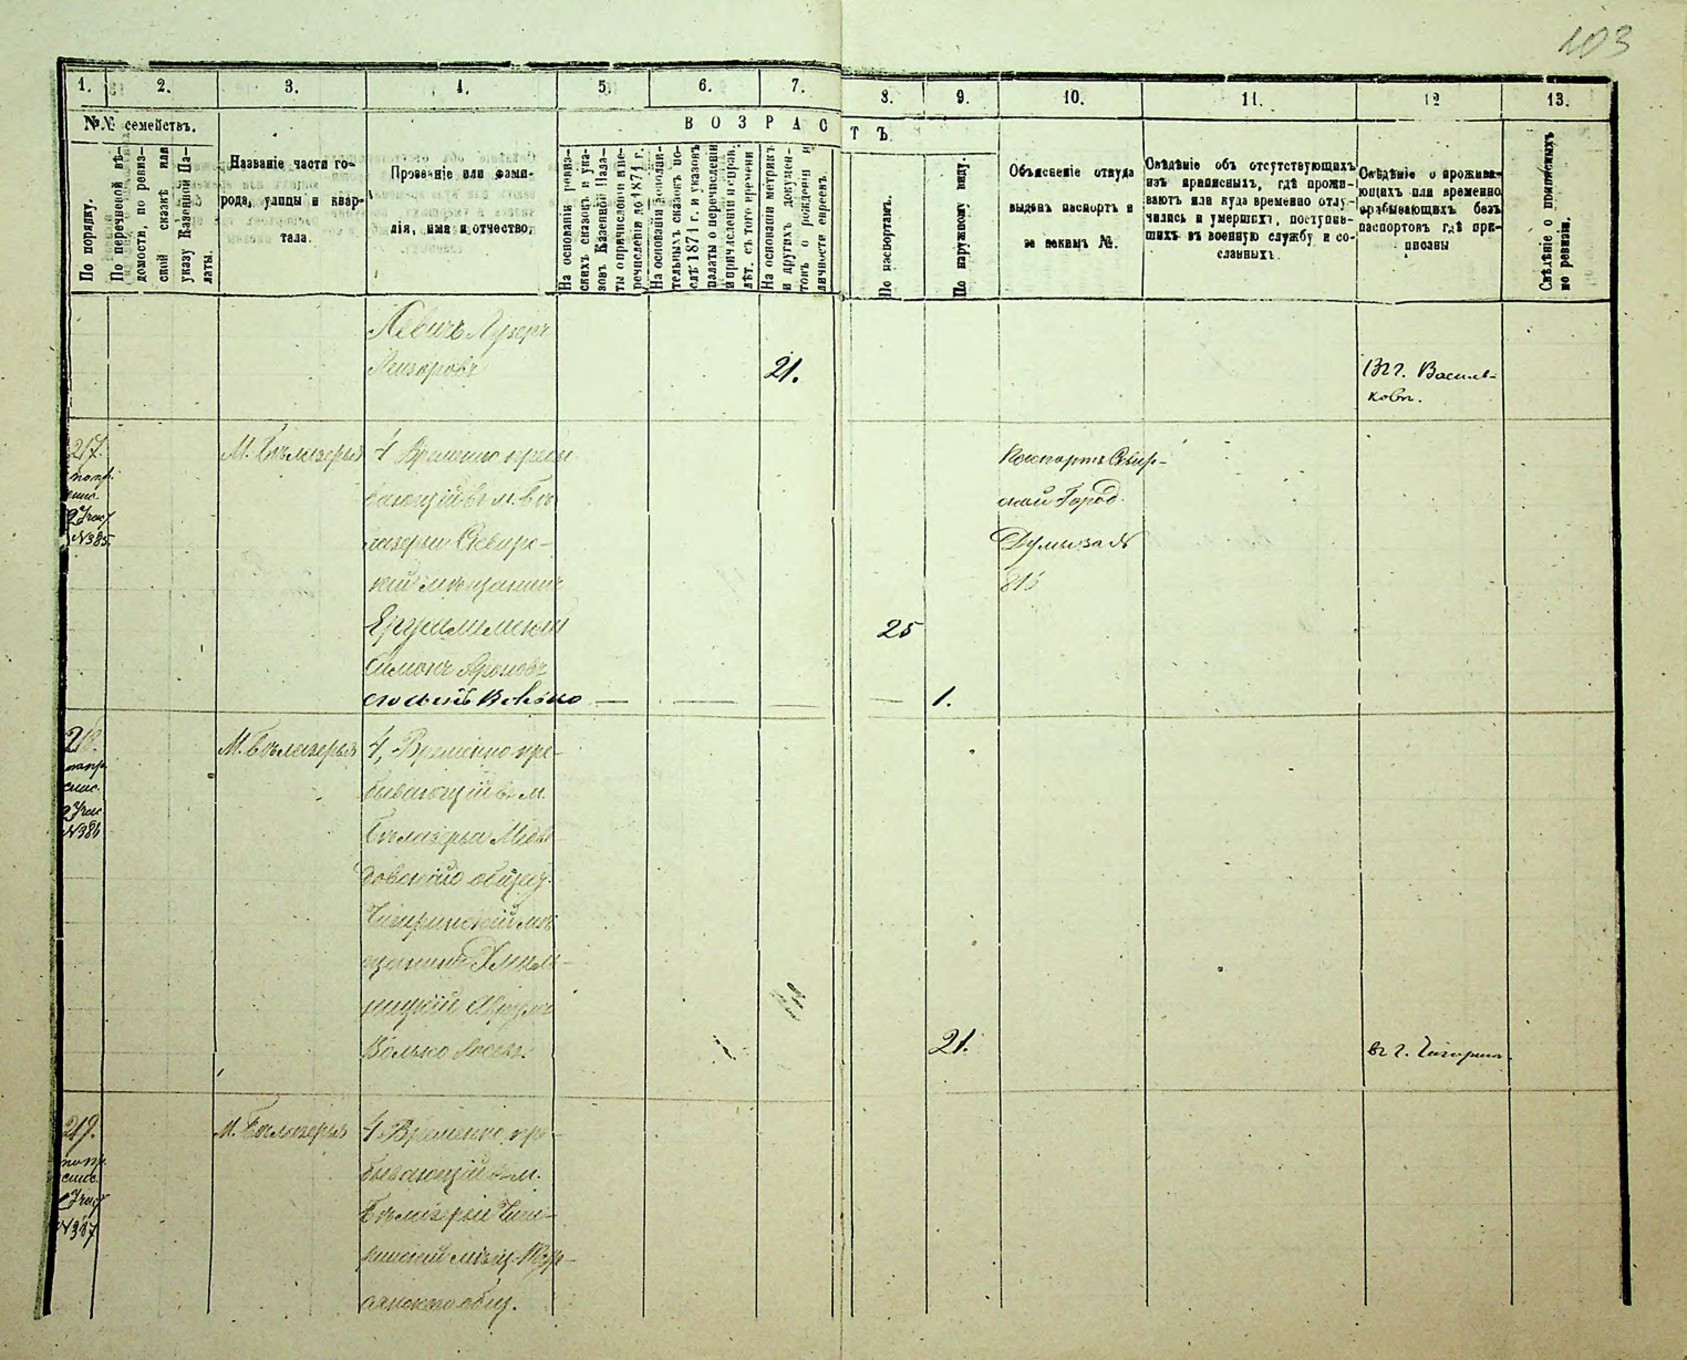 103
1. 2. 3. 4. 5. 6. 7. 8. 9. 10. 11. 12 13.
№№ семействъ.
В О З Р А С Т Ъ
По порядку.
По перечневой вѣ-
домости, по ревиз-
ской сказкѣ или
указу Казенной Па-
латы.
Названіе части го-
рода, улицы и квар-
тала.
Прозваніе или фами-
лія, имя и отчество,
На основаніи ревиз-
скихъ сказокъ и ука-
зовъ Казенной Пала-
ты о причисленіи и пе-
речисленіи до 1871 г.
На основаніи дополни-
тельныхъ сказокъ по-
слѣ 1871 г. и указовъ
палаты о перечисленіи
и причисленіи и прав.
лѣт. съ того времени
На основаніи метрикъ
и другихъ докумен-
товъ о рожденіи и
личности евреевъ.
По паспортамъ.
По наружному виду.
Объясненіе откуда
выданъ паспортъ и
за какимъ №.
Свѣдѣніе объ отсутствующихъ
изъ приписныхъ, гдѣ прожи-
ваютъ или куда временно отлу-
чились и умершихъ, поступив-
шихъ въ военную службу и со-
сланныхъ.
Свѣдѣніе о прожива-
ющихъ или временно
пребывающихъ безъ
паспортовъ гдѣ при-
писаны
Свѣдѣніе о приписныхъ
по ревизіи.
Левитъ Лузеръ
Лейзоровъ
21.
Въ г. Василь-
ковѣ.
217.
М. Бѣлозерье
4 Временно пребы
вающій въ м. Бѣ
лозерьи Сквирс-
кій мѣщанинъ
Ерусалимскій
Симонъ Ароновъ
25
сынъ Волько — — — — 1.
N385.
Паспортъ Сквир-
ской Город.
Думы за №
815
218.
М. Бѣлозерье
4, Временно пре-
бывающій в м.
Бѣлозерьи Медве
довскаго общес.
Чигиринскій мѣ
щанинъ Хмель-
ницкій
Волько
21.
в г. Чигирин.
219.
М. Бѣлозерье
4 Временно пре-
бывающій в м.
Бѣлозерьи Чиги-
ринскій мѣщ.
общ.